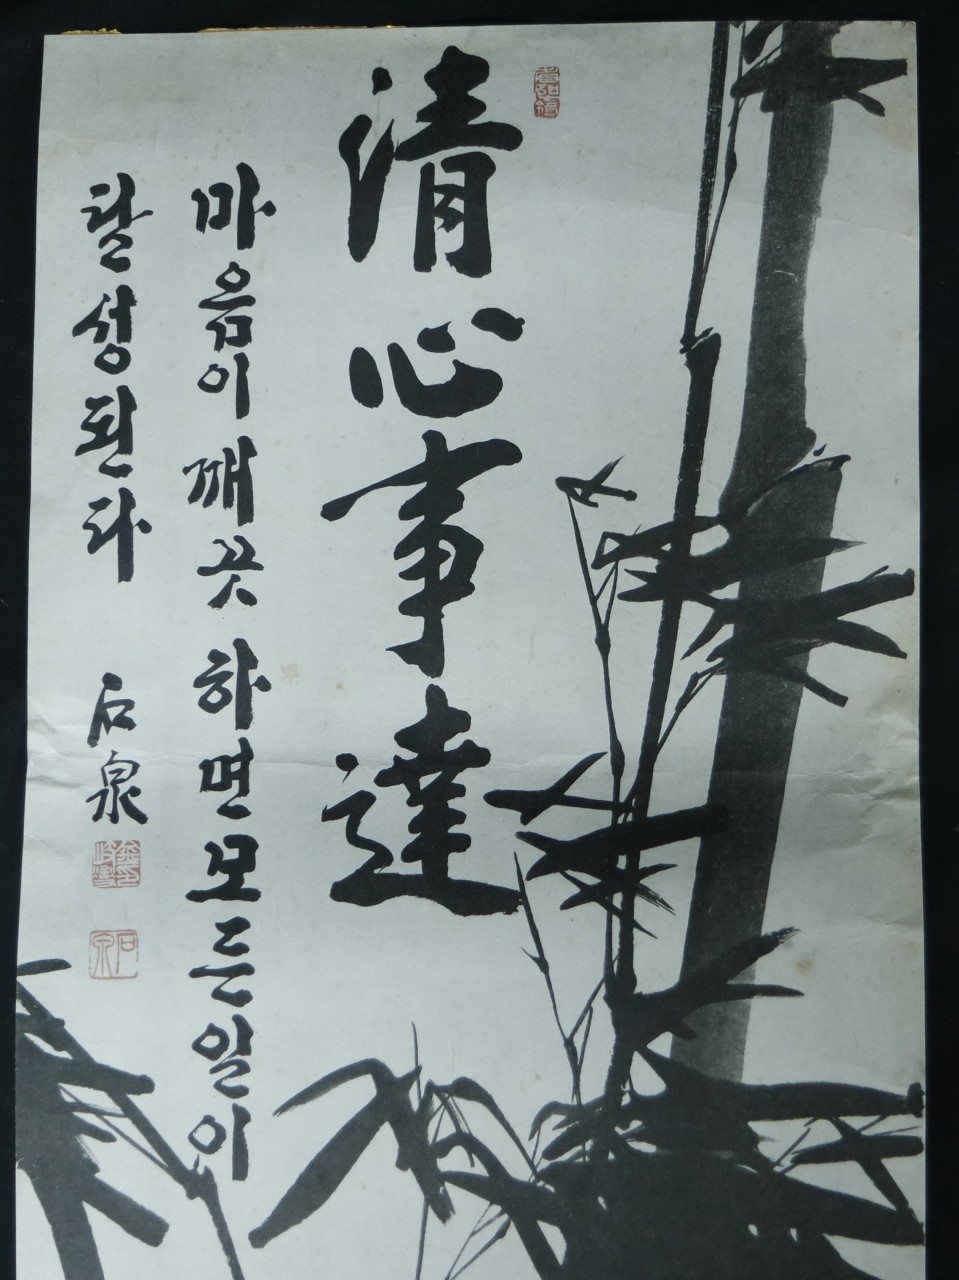 清心事達
마음이 깨끗 하면 모든 일이
달성된다
石泉